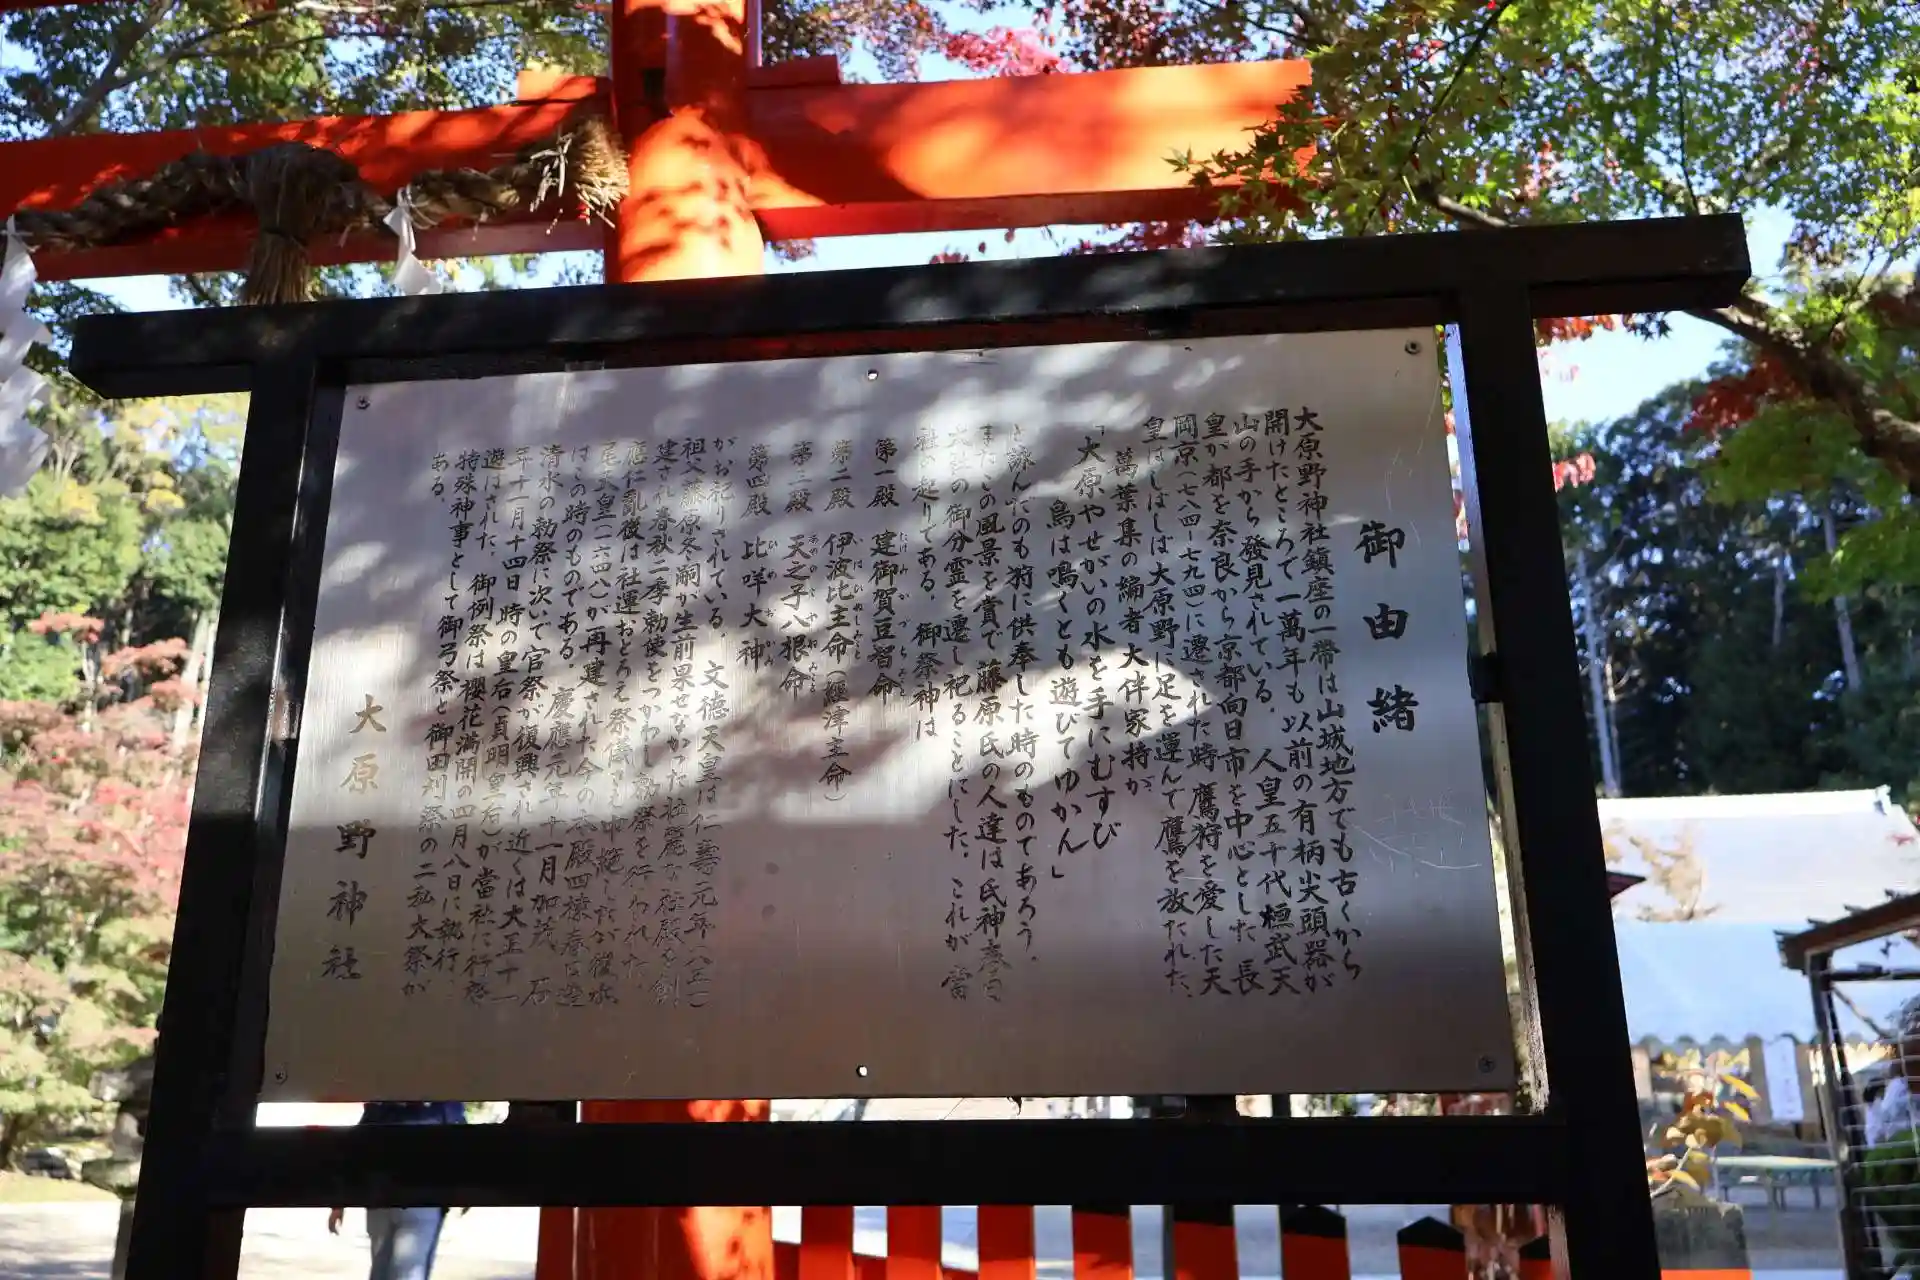 御由緒
大原野神社鎮座の一帯は山城地方でも古くから
開けたところで一萬年も以前の有柄尖頭器が
山の手から發見されている。人皇五十代桓武天
皇が都を奈良から京都向日市を中心とした長
岡京(七八四-七九四)に遷された時、鷹狩を愛した天
皇はしばしば大原野に足を運んで鷹を放たれた、
萬葉集の編者大伴家持が
「大原やせがいの水を手にむすび
鳥は鳴くとも遊びてゆかん」
と詠んだのも狩に供奉した時のものであろう。
またこの風景を賞で藤原氏の人達は氏神春日
大社の御分霊を遷し祀ることにした。これが當
社の起りである。御祭神は
第一殿 建御賀豆智命
第二殿 伊波比主命(經津主命)
第三殿 天之子八根命
第四殿 比咩大神
がお祀りされている。文德天皇は仁壽元年(八五一)
祖父藤原冬嗣が生前果せなかった壮麗な社殿を創
建され春秋二季勅使をつかわし勅祭を行われた。
應仁亂後は社運おとろえ祭儀さえ中絶したが後水
尾天皇(一六四八)が再建された今の本殿四棟春日造
はこの時のものである。慶應元年十一月加茂、石
清水の勅祭に次いで官祭が復興され近くは大正十一
年十一月十四日時の皇后(貞明皇后)が當社に行啓
遊ばされた。御例祭は櫻花満開の四月八日に執行、
特殊神事として御弓祭と御田刈祭の二私大祭が
ある、
大原野神社